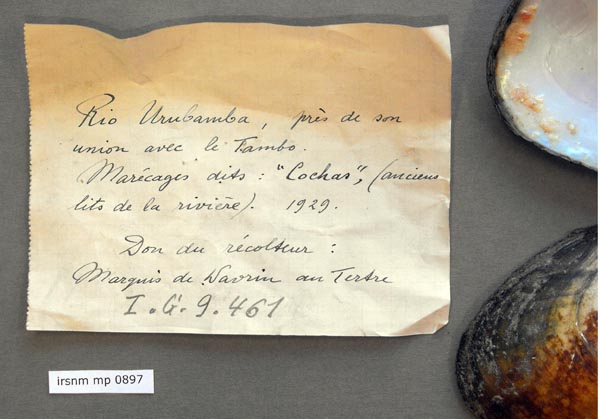 Rio Urubamba, près de son
union avec le Tambo.
Marécages dits : "Cochas", (anciens
lits de la rivière). 1929.
Don du récolteur :
Marquis de Wavrin au Tertre
I.G. 9.461
irsnm mp 0897